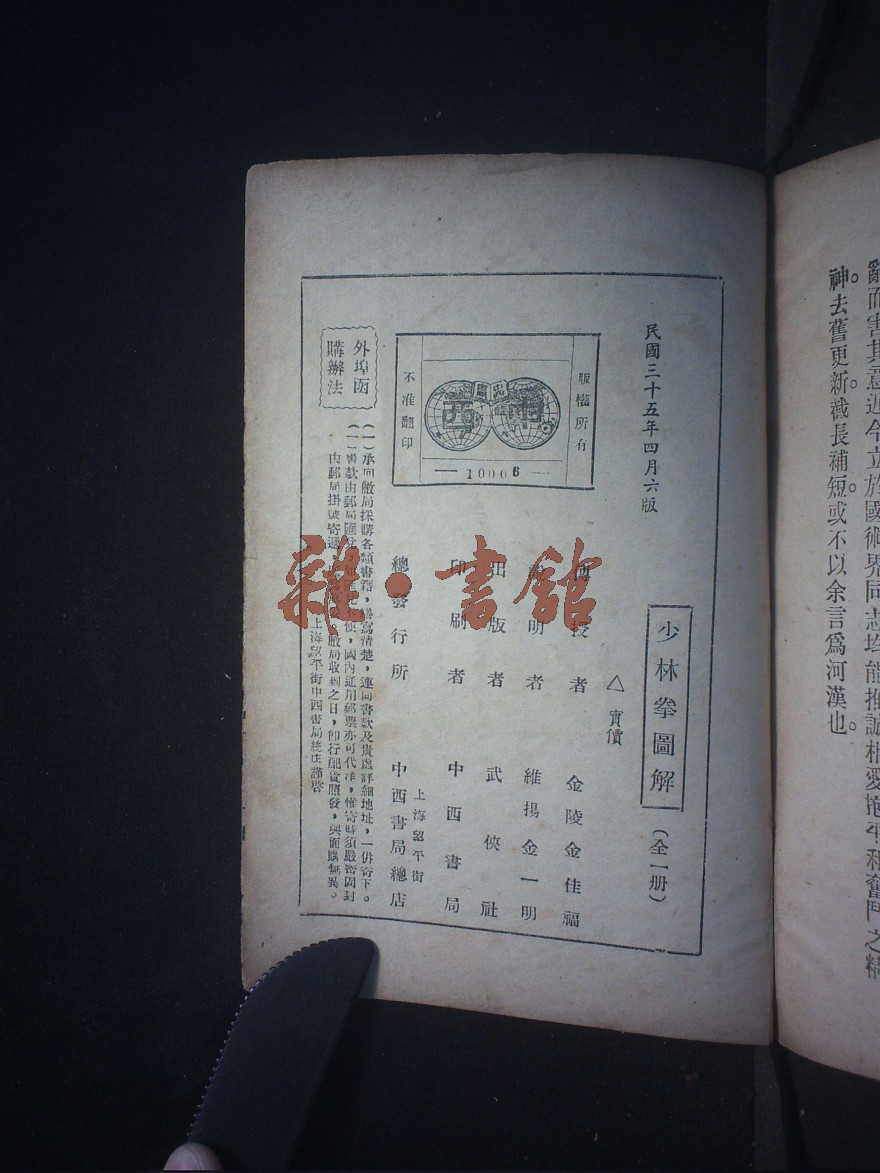 辭而害其意近今立於國術界同志均能推誠相愛抱平和奮鬥之精
神去舊更新截長補短或不以余言爲河漢也。
民國三十五年四月六版
少林拳圖解
(全一册)
△實價
傳授者 金陵金佳福
說明者 維揚金一明
出版者 武俠社
印刷者 中西書局
總發行所 上海望平街
中西書局總店
版權所有
不准翻印
中西
10006
外埠函
購辦法
(一)承向敝局採購各類書籍,繕寫清楚,連同書款及貴處詳細地址,一併寄下。
(一)書款由郵局匯,國內通用郵票亦可代洋,惟寄時須嚴密固封
由郵局掛號寄遞,敝局收到之日,卽行配貨照發,與面購無異。
上海望平街中西書局總店謹啓
雜·書館